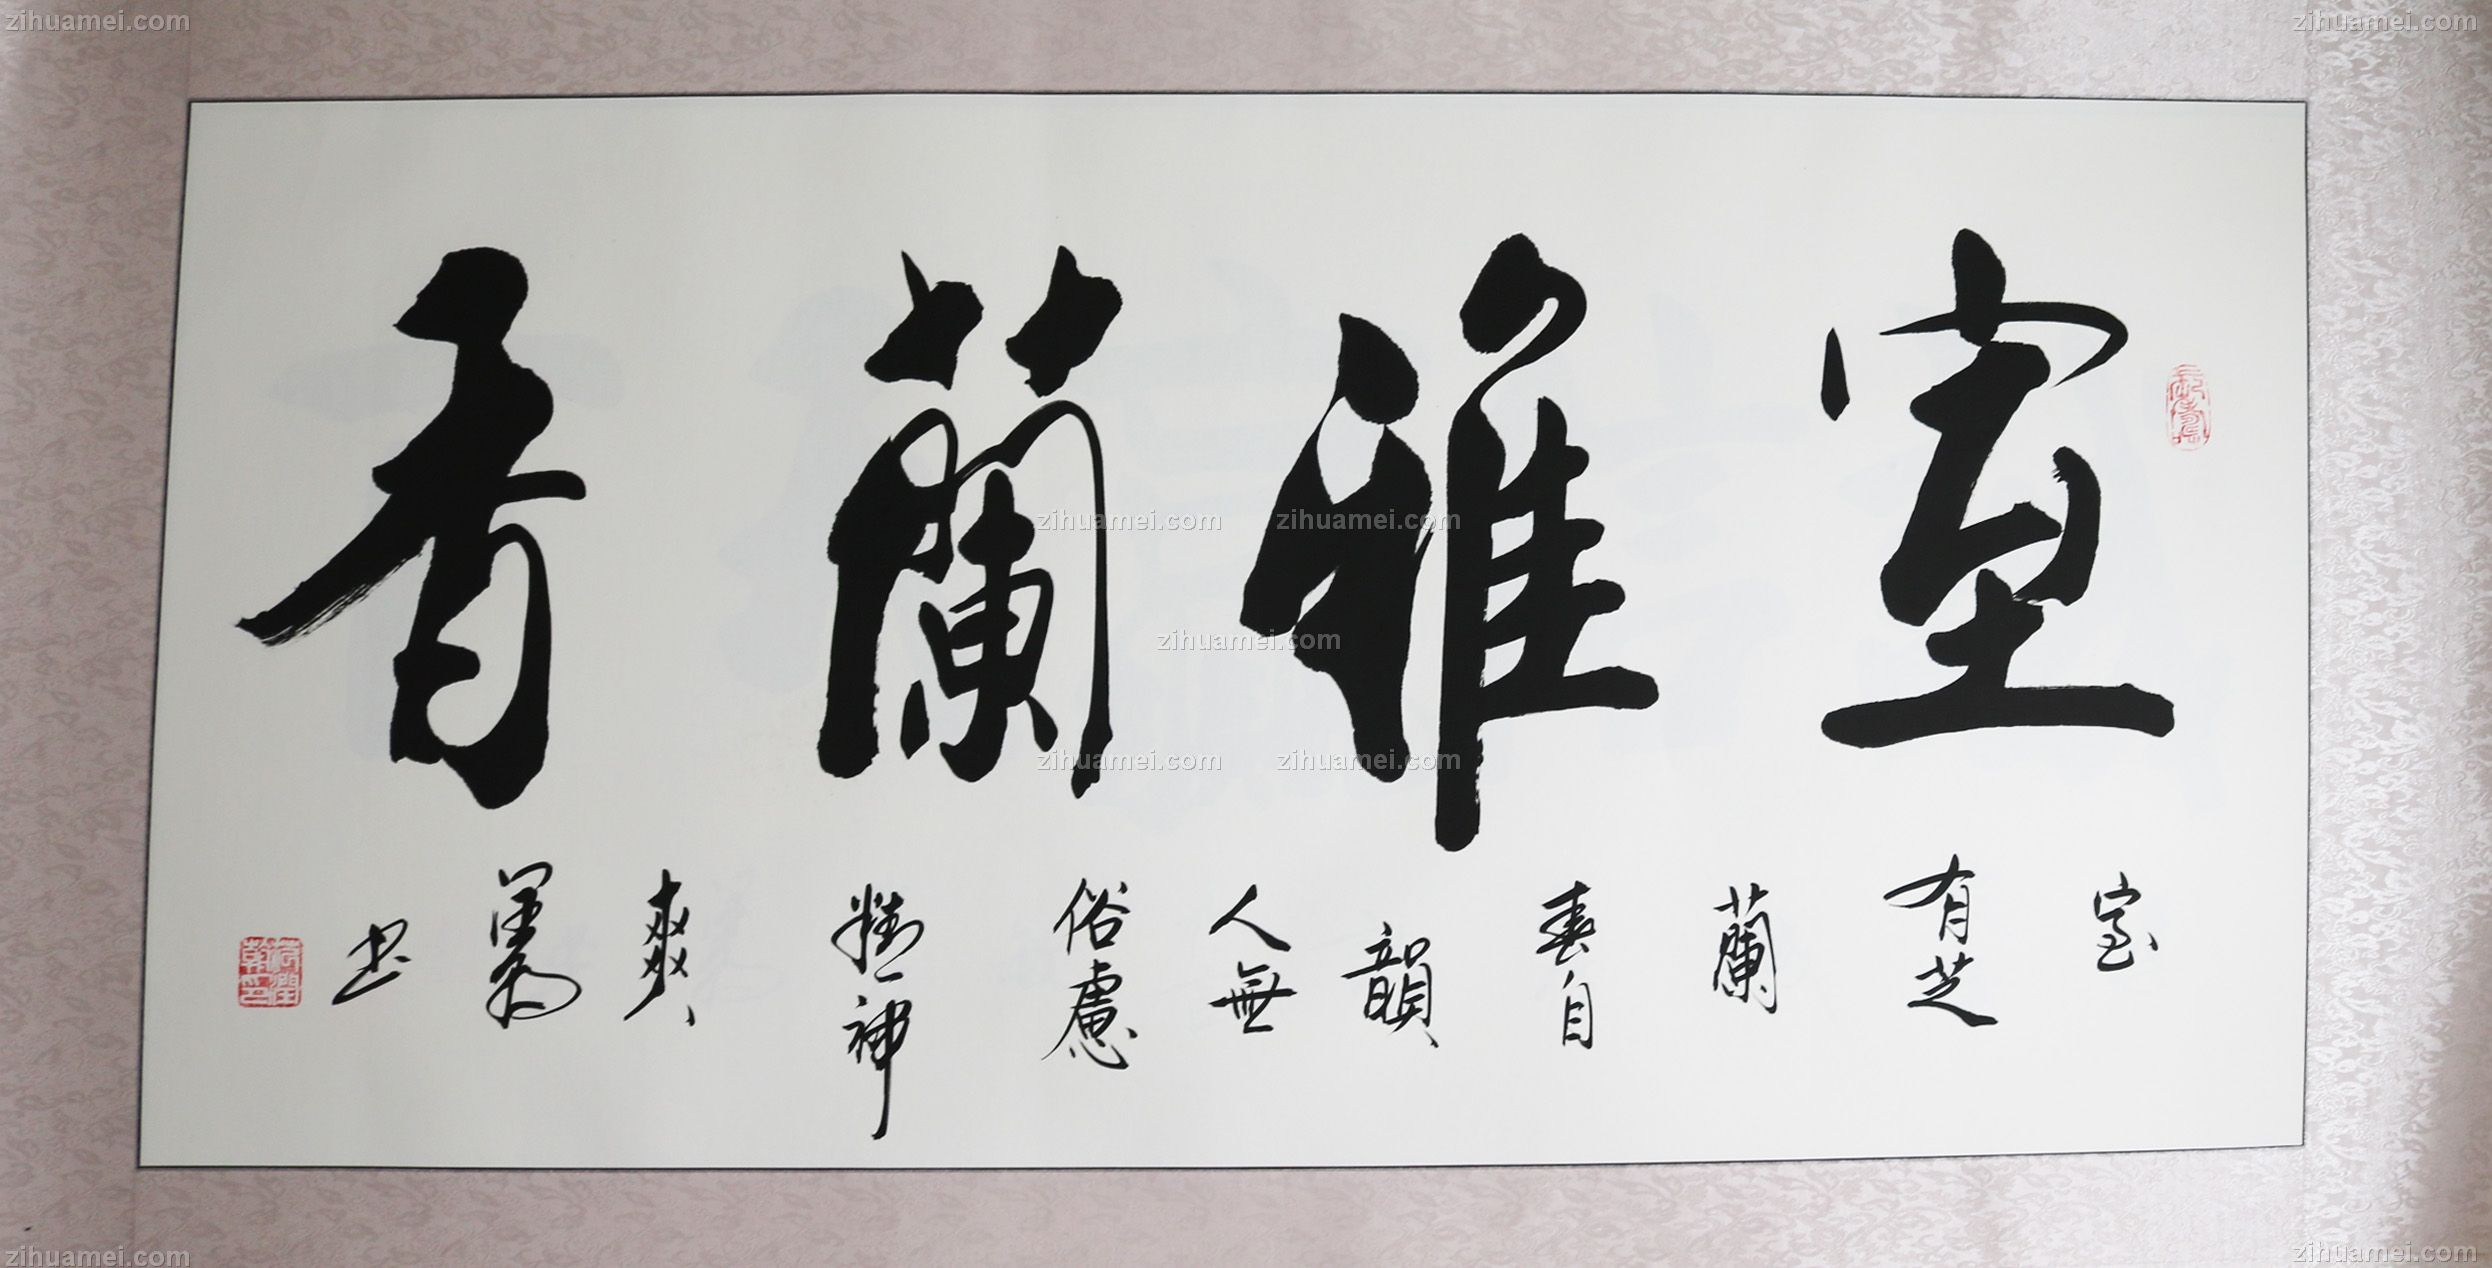 室雅蘭香
室有芝蘭春自韻人無俗慮精神爽
書
zihuamei.com
zihuamei.com
zihuamei.com
zihuamei.com
zihuamei.com
zihuamei.com
zihuamei.com
zihuamei.com
zihuamei.com